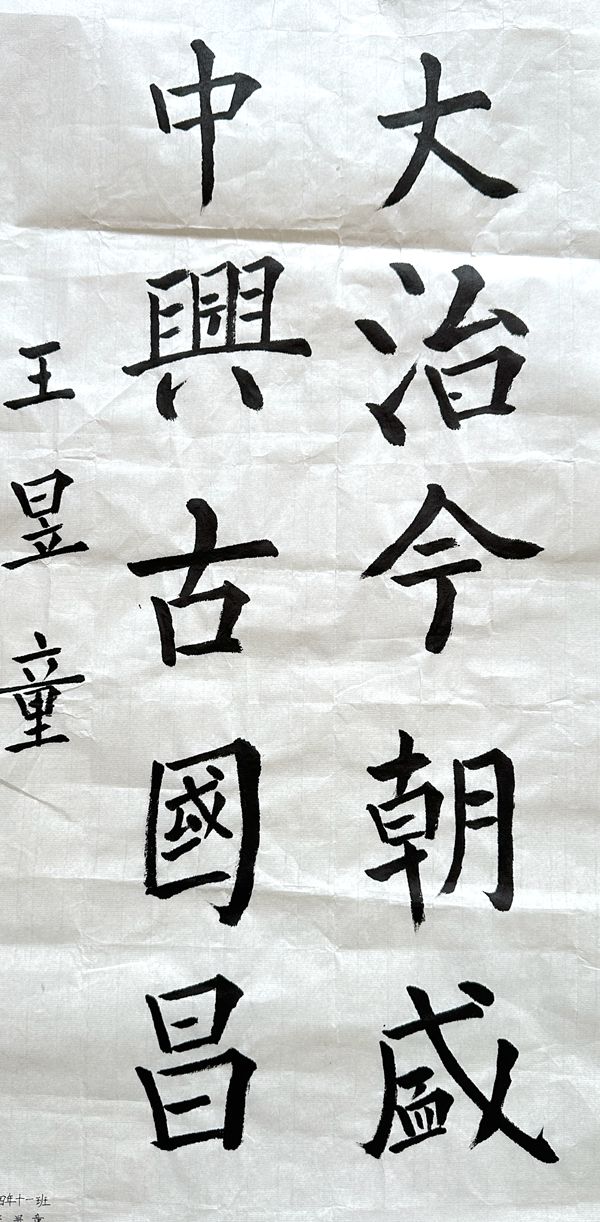 大治今朝盛
中興古國昌
王昱童
年十一班